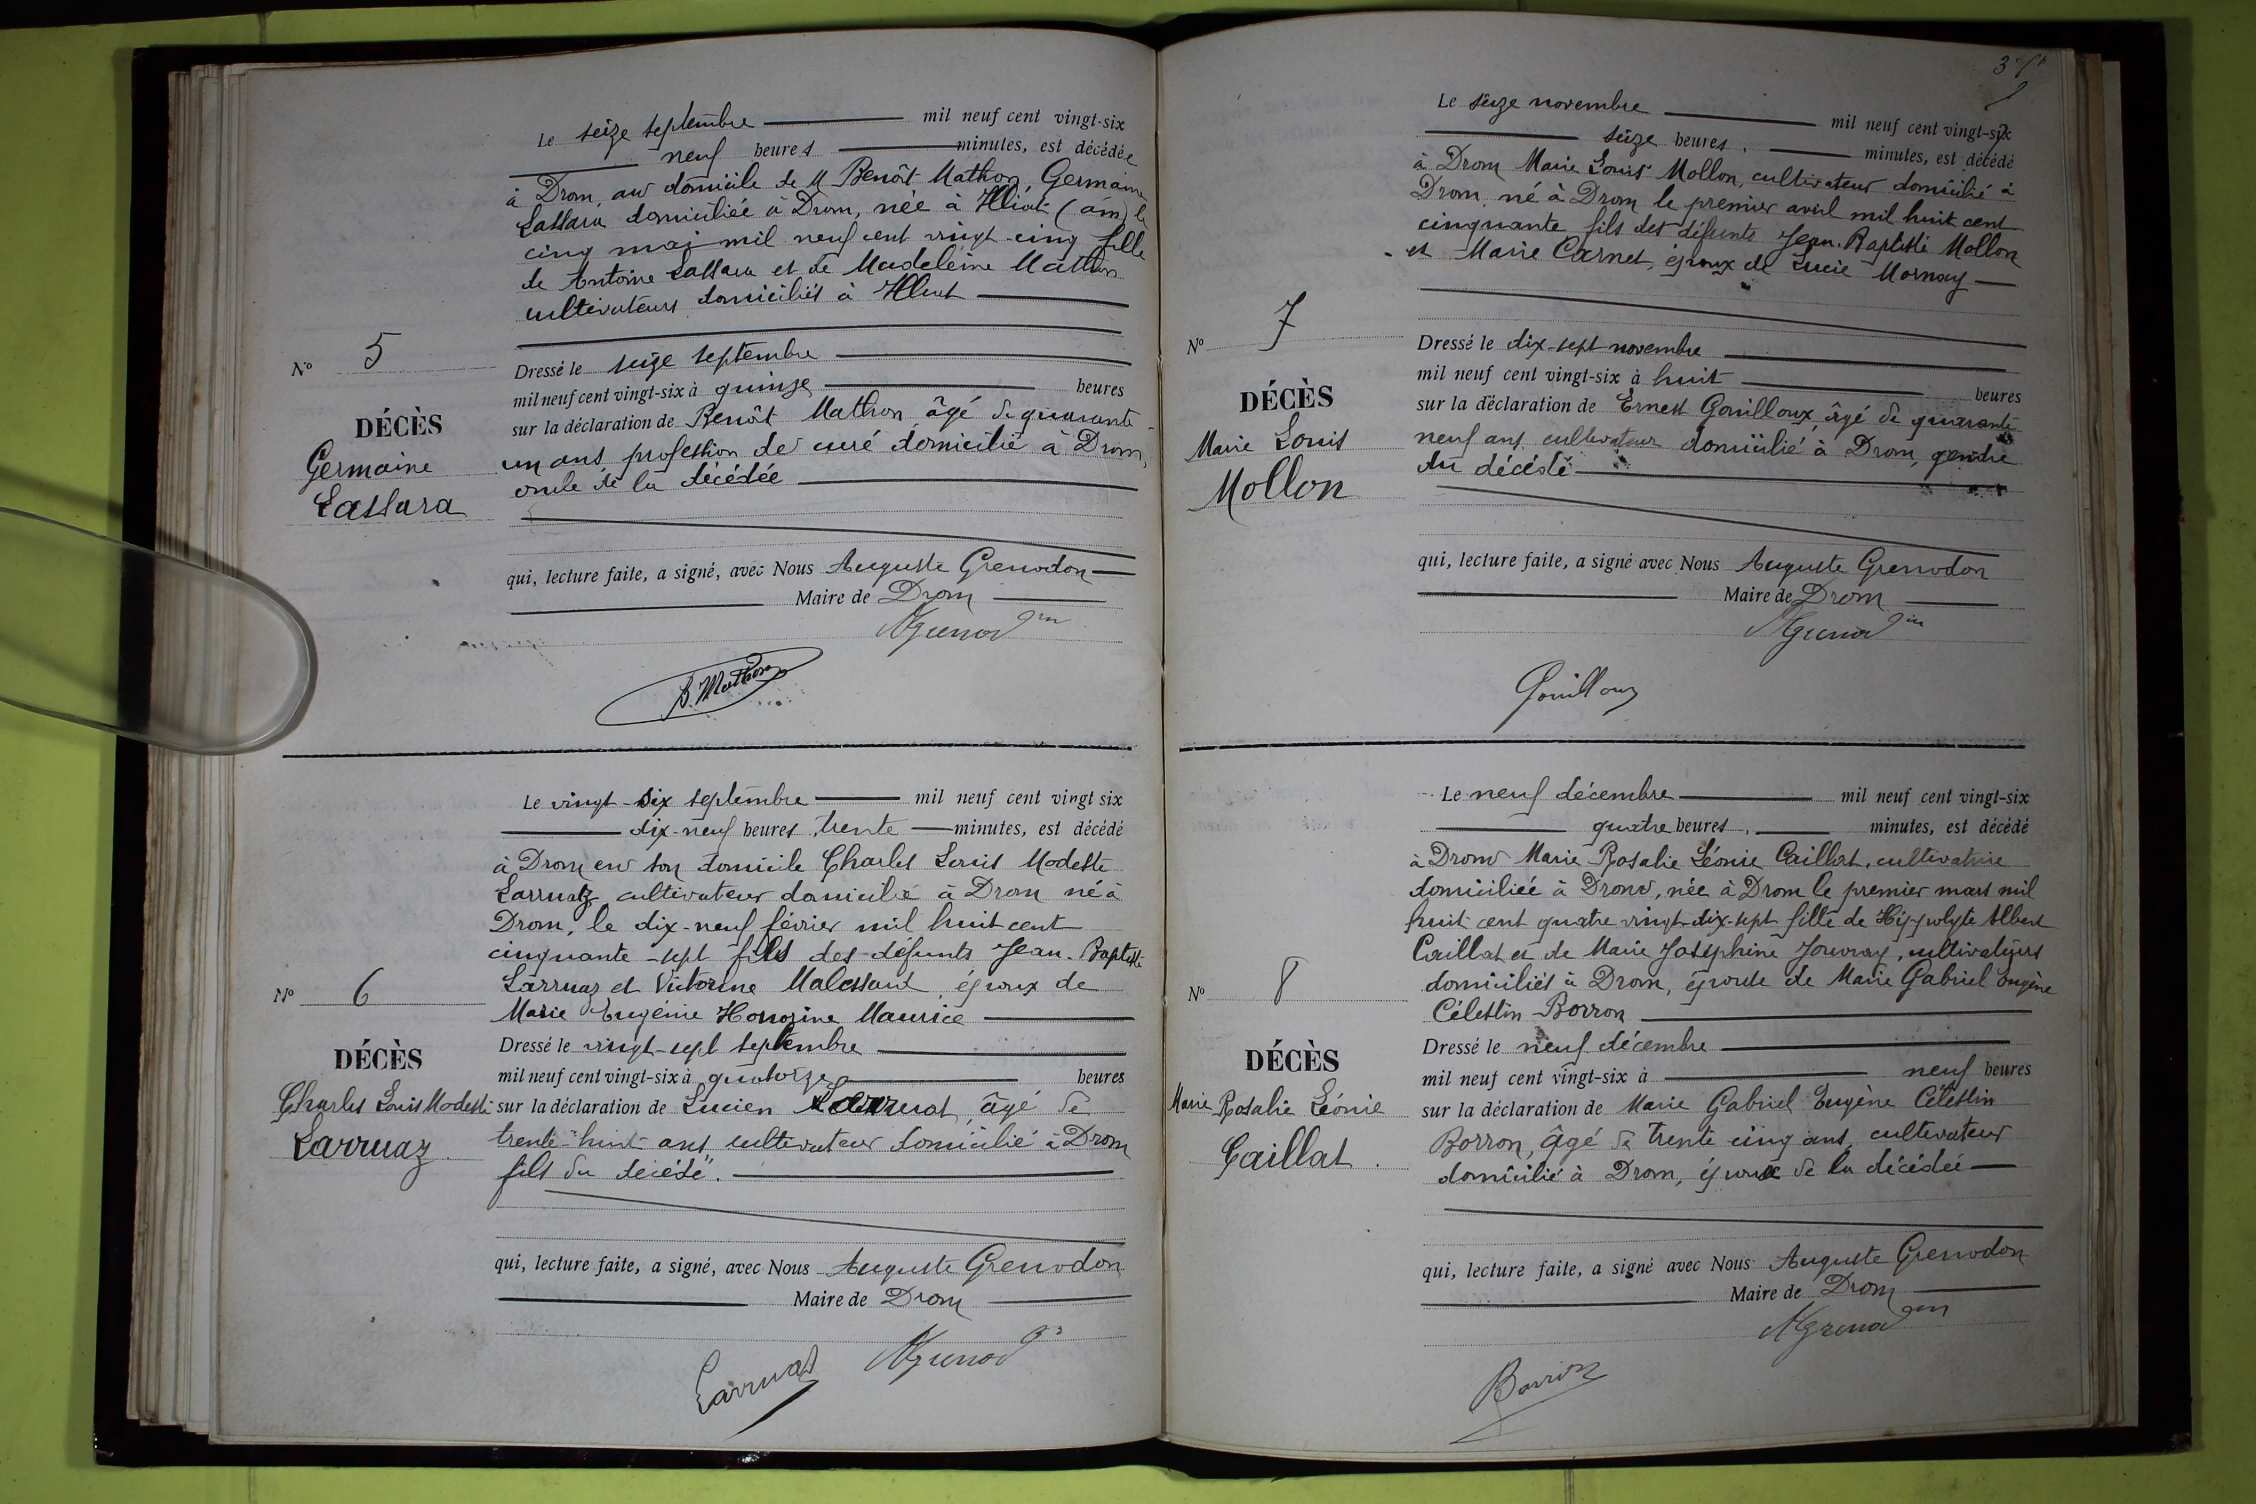 Le seize septembre mil neuf cent vingt-six
neuf heures minutes, est décédée
à Drom, au domicile de M Benoît Mathon, Germaine
Lassara domiciliée à Drom, née à Illiat (ain) le
cinq mai mil neuf cent vingt-cinq fille
de Antoine Lassara et de Madeleine Mathon
cultivateurs domiciliés à Illiat
No 5
DÉCÈS
Germaine
Lassara
Dressé le seize septembre
mil neuf cent vingt-six à quinze heures
sur la déclaration de Benoît Mathon âgé de quarante
un ans profession de curé domicilié à Drom,
oncle de la décédée
qui, lecture faite, a signé, avec Nous Auguste Grenodon
Maire de Drom
B. Mathon
Le vingt-six septembre mil neuf cent vingt six
dix-neuf heures, trente minutes, est décédé
à Drom en son domicile Charles Louis Modeste
Larruaz cultivateur domicilié à Drom né à
Drom, le dix-neuf février mil huit cent
cinquante-sept fils des défunts Jean-Baptiste
Larruaz et Victorine Malessard époux de
Marie Eugénie Honorine Maurice
No 6
DÉCÈS
Charles Louis Modeste
Larruaz
Dressé le vingt-sept septembre
mil neuf cent vingt-six à quatorze heures
sur la déclaration de Lucien Larruat, âgé de
trente-huit ans cultivateur domicilié à Drom
fils du décédé.
qui, lecture faite, a signé, avec Nous Auguste Grenodon
Maire de Drom
Larruaz
Le seize novembre mil neuf cent vingt-six
seize heures, minutes, est décédé
à Drom Marie Louis Mollon, cultivateur domicilié à
Drom né à Drom le premier avril mil huit cent
cinquante fils des défunts Jean-Baptiste Mollon
et Marie Carnet, époux de Lucie Mornay
No 7
DÉCÈS
Marie Louis
Mollon
Dressé le dix-sept novembre
mil neuf cent vingt-six à huit heures
sur la déclaration de Ernest Gouilloux, âgé de quarante-
neuf ans cultivateur domicilié à Drom, gendre
du décédé
qui, lecture faite, a signé avec Nous Auguste Grenodon
Maire de Drom
Gouilloux
Le neuf décembre mil neuf cent vingt-six
quatre heures, minutes, est décédé
à Drom Marie Rosalie Léonie Caillat, cultivatrice
domiciliée à Drom, née à Drom le premier mars mil
huit cent quatre vingt-dix-sept fille de Hippolyte Albert
Caillat et de Marie Joséphine Jouvray, cultivateurs
domiciliés à Drom, épouse de Marie Gabriel Eugène
Célestin Borron
No 8
DÉCÈS
Marie Rosalie Léonie
Caillat.
Dressé le neuf décembre
mil neuf cent vingt-six à neuf heures
sur la déclaration de Marie Gabriel Eugène Célestin
Borron, âgé de trente cinq ans, cultivateur
domicilié à Drom, époux de la décédée
qui, lecture faite, a signé avec Nous Auguste Grenodon
Maire de Drom
Borron